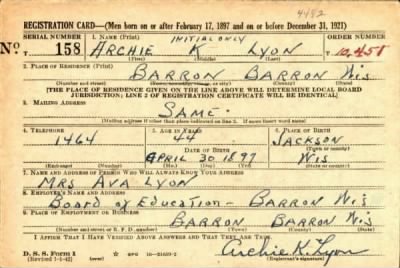 4482
REGISTRATION CARD—(Men born on or after February 17, 1897 and on or before December 31, 1921)
SERIAL NUMBER 1. NAME (Print) INITIAL ONLY ORDER NUMBER
No 158 ARCHIE K LYON T 10,458
(First) (Middle) (Last)
2. PLACE OF RESIDENCE (Print)
BARRON BARRON Wis
(Number and street) (State)
[THE PLACE OF RESIDENCE GIVEN ON THE LINE ABOVE WILL DETERMINE LOCAL BOARD
JURISDICTION; LINE 2 OF REGISTRATION CERTIFICATE WILL BE IDENTICAL]
3. MAILING ADDRESS
SAME.
(Mailing address if other than place indicated on line 2. If same insert word same)
4. TELEPHONE 5. AGE IN YEARS 6. PLACE OF BIRTH
1464 44 JACKSON
DATE OF BIRTH (Town or county)
APRIL 30 1897 Wis
(Exchange) (Number) (Mo.) (Day) (Yr.) (State or country)
7. NAME AND ADDRESS OF PERSON WHO WILL ALWAYS KNOW YOUR ADDRESS
MRS AVA LYON
8. EMPLOYER'S NAME AND ADDRESS
Board of Education - BARRON Wis
9. PLACE OF EMPLOYMENT OR BUSINESS
BARRON BARRON Wis
(Number and street or R. F. D. number) (Town) (County) (State)
I AFFIRM THAT I HAVE VERIFIED ABOVE ANSWERS AND THAT THEY ARE TRUE.
D. S. S. Form 1
(Revised 1-1-42) Archie K. Lyon